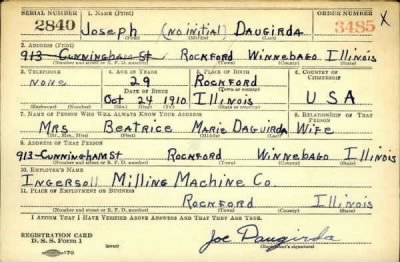 SERIAL NUMBER 1. NAME (Print) ORDER NUMBER
2840 Joseph (no initial) Daugirda 3485 X
(First) (Middle) (Last)
2. ADDRESS (Print)
913 Cunningham St Rockford Winnebago Illinois
(Number and street or R. F. D. number) (Town) (County) (State)
3. TELEPHONE 4. AGE IN YEARS 5. PLACE OF BIRTH 6. COUNTRY OF CITIZENSHIP
None 29 Rockford
DATE OF BIRTH
Oct 24 1910 Illinois USA
(Exchange) (No.) (Mo.) (Day) (Yr.) (State or country)
7. NAME OF PERSON WHO WILL ALWAYS KNOW YOUR ADDRESS 8. RELATIONSHIP OF THAT PERSON
Mrs Beatrice Marie Daguirda Wife
(Mr., Mrs., Miss) (First) (Middle) (Last)
9. ADDRESS OF THAT PERSON
913-Cunningham St Rockford Winnebago Illinois
(Number and street or R. F. D. number) (Town) (County) (State)
10. EMPLOYER'S NAME
Ingersoll Milling Machine Co.
11. PLACE OF EMPLOYMENT OR BUSINESS
Rockford Illinois
(Number and street or R. F. D. number) (Town) (County) (State)
I AFFIRM THAT I HAVE VERIFIED ABOVE ANSWERS AND THAT THEY ARE TRUE.
REGISTRATION CARD
D. S. S. FORM 1 Joe Daugirda
(Registrant's signature)